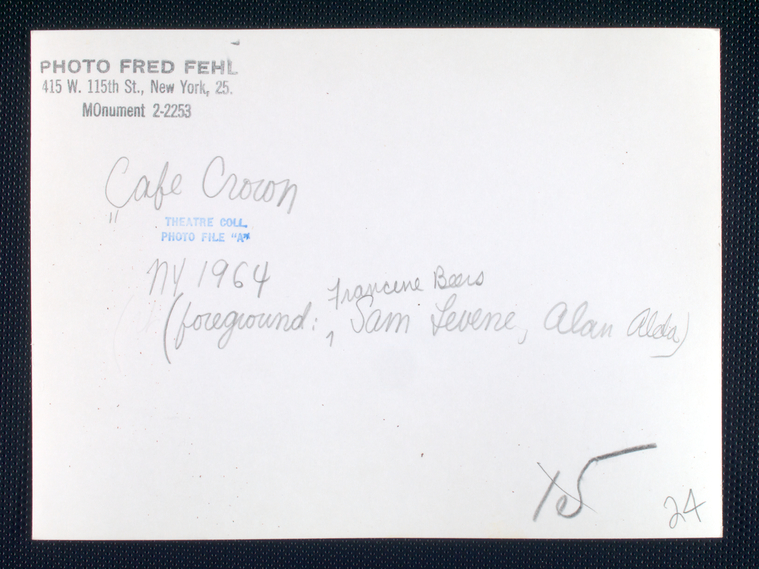 PHOTO FRED FEHL
415 W. 115th St., New York, 25.
MOnument 2-2253
Cafe Crown
"
THEATRE COLL.
PHOTO FILE "A"
NY 1964
Francine Beers
(foreground: Sam Levene, Alan Alda)
15
24